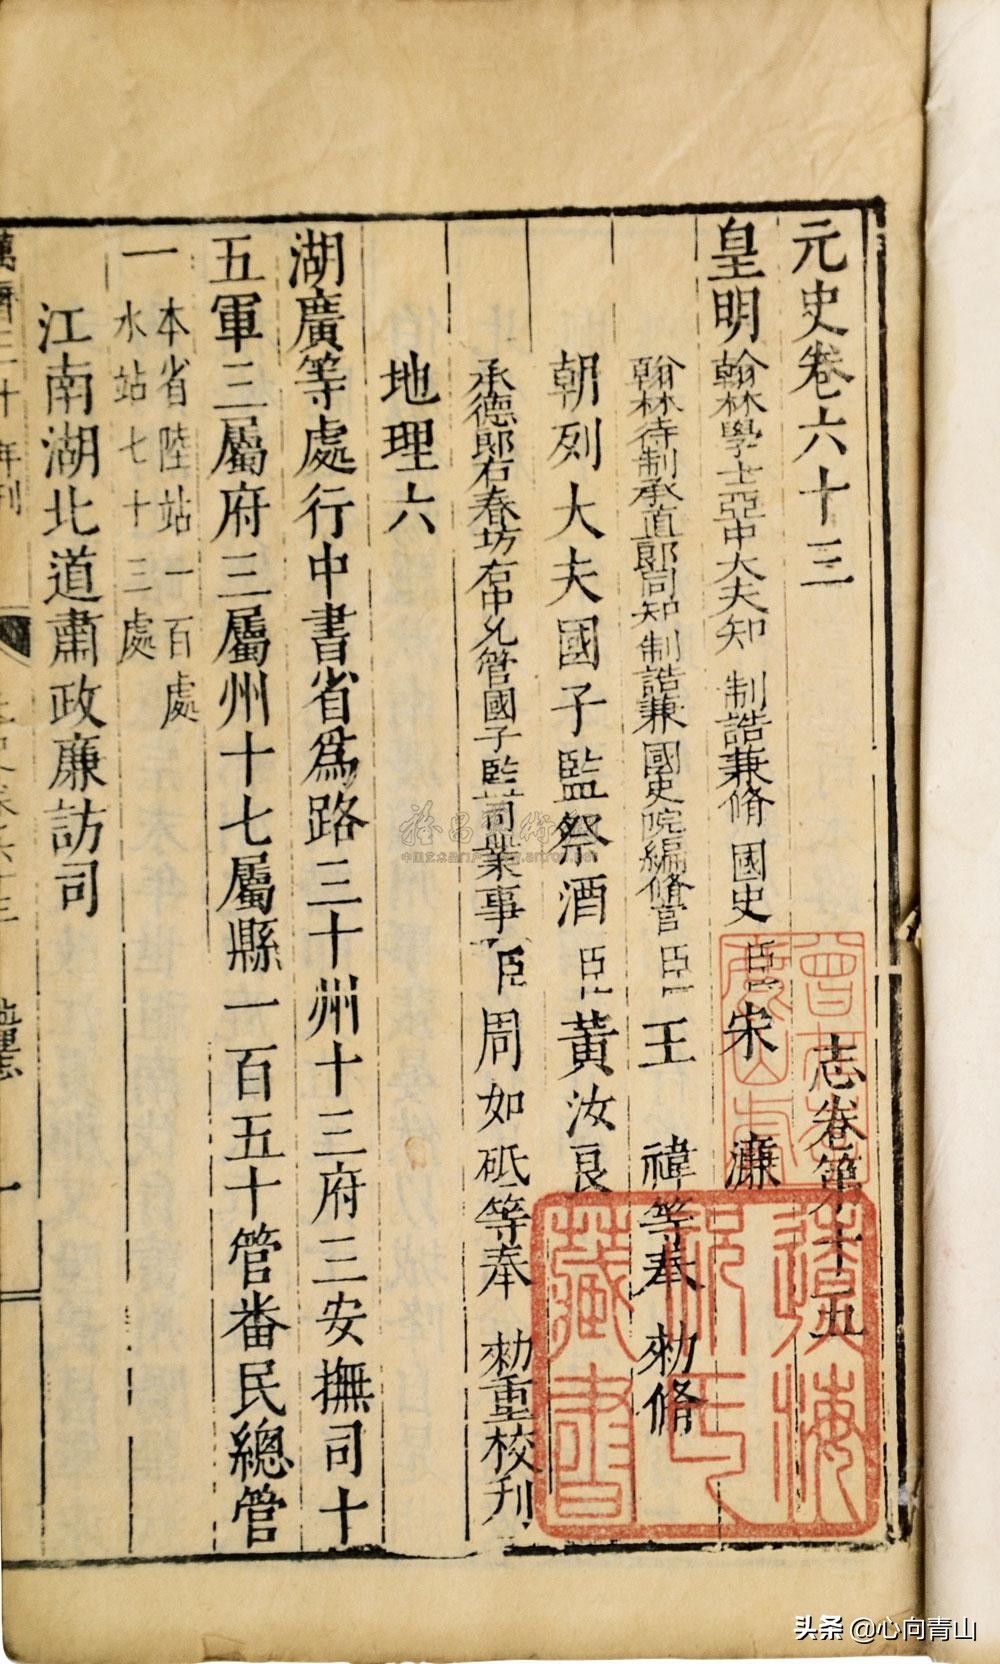 元史卷六十三　志卷第十五
皇明翰林學士亞中大夫知　制誥兼修　國史臣宋　濂
翰林待制承直郎同知　制誥兼國史院編脩官臣王　禕等奉　勑脩
朝列大夫國子監祭酒臣黃汝良
承德郎右春坊右中允管國子監司業事臣周如砥等奉　勑重校刊
地理六
湖廣等處行中書省爲路三十州十三府三安撫司十
五軍三屬府三屬州十七屬縣一百五十管番民總管
一
本省陸站一百處
水站七十三處
江南湖北道肅政廉訪司
藏書
头条 @心向青山